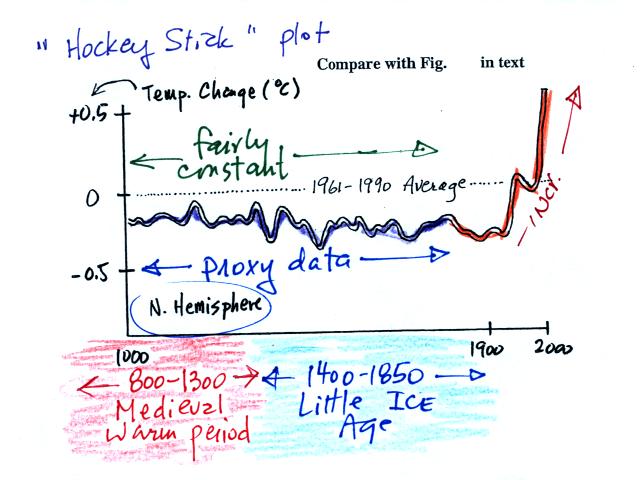 "Hockey Stick" plot
Compare with Fig. in text
Temp. Change (°C)
+0.5
fairly
constant
1961-1990 Average
0
INCR.
-0.5
proxy data
N. Hemisphere
1000
1900
2000
800-1300
1400-1850
Medieval
Little ICE
Warm period
Age